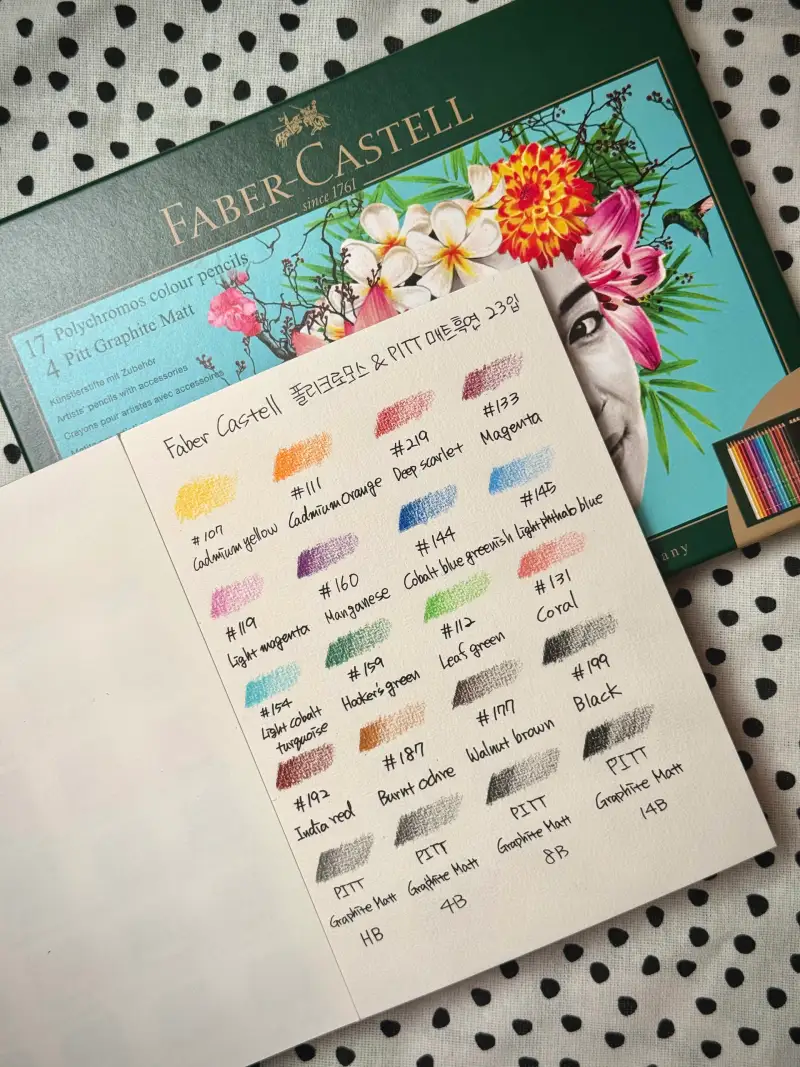 FABER-CASTELL
since 1761
17 Polychromos colour pencils
4 Pitt Graphite Matt
Künstlerstifte mit Zubehör
Artists' pencils with accessories
Crayons pour artistes avec accessoires
Faber Castell 폴리크로모스 & PITT 매트흑연 23입
#107
Cadmium yellow
#111
Cadmium orange
#219
Deep scarlet
#133
Magenta
#119
Light magenta
#160
Manganese
#144
Cobalt blue greenish
#145
light phthalo blue
#154
Light cobalt
turquoise
#159
Hooker's green
#112
Leaf green
#131
Coral
#192
India red
#187
Burnt ochre
#177
Walnut brown
#199
Black
PITT
Graphite Matt
HB
PITT
Graphite Matt
4B
PITT
Graphite Matt
8B
PITT
Graphite Matt
14B